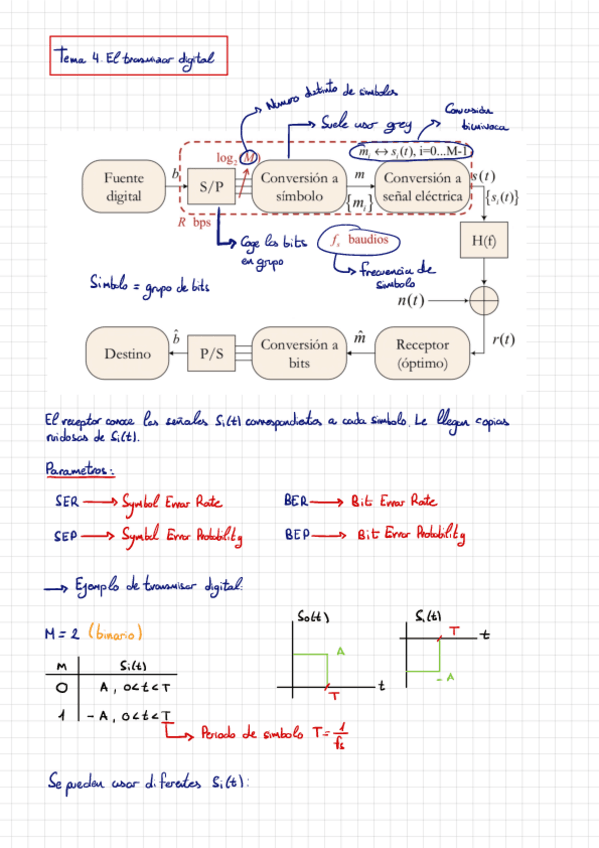 Tema 4. El transmisor digital
Numero distinto de simbolos
Suele usar grey
Conversión biunivoca
log₂ M
m_i ↔ s_i(t), i=0...M-1
Fuente digital
b
S/P
Conversión a símbolo
m
{m_i}
Conversión a señal eléctrica
s(t)
{s_i(t)}
R bps
Coge los bits en grupo
f_s baudios
frecuencia de simbolo
H(f)
Simbolo = grupo de bits
n(t)
r(t)
Destino
b̂
P/S
Conversión a bits
m̂
Receptor (óptimo)
El receptor conoce las señales Si(t) correspondientes a cada simbolo. Le llegan copias
ruidosas de Si(t).
Parametros:
SER → Symbol Error Rate
BER → Bit Error Rate
SEP → Symbol Error Probability
BEP → Bit Error Probability
→ Ejemplo de transmisor digital:
M = 2 (binario)
M Si(t)
0 A, 0<t<T
1 -A, 0<t<T
So(t)
A
T
t
S₁(t)
T
t
-A
Periodo de simbolo T = 1/fs
Se pueden usar diferentes Si(t):